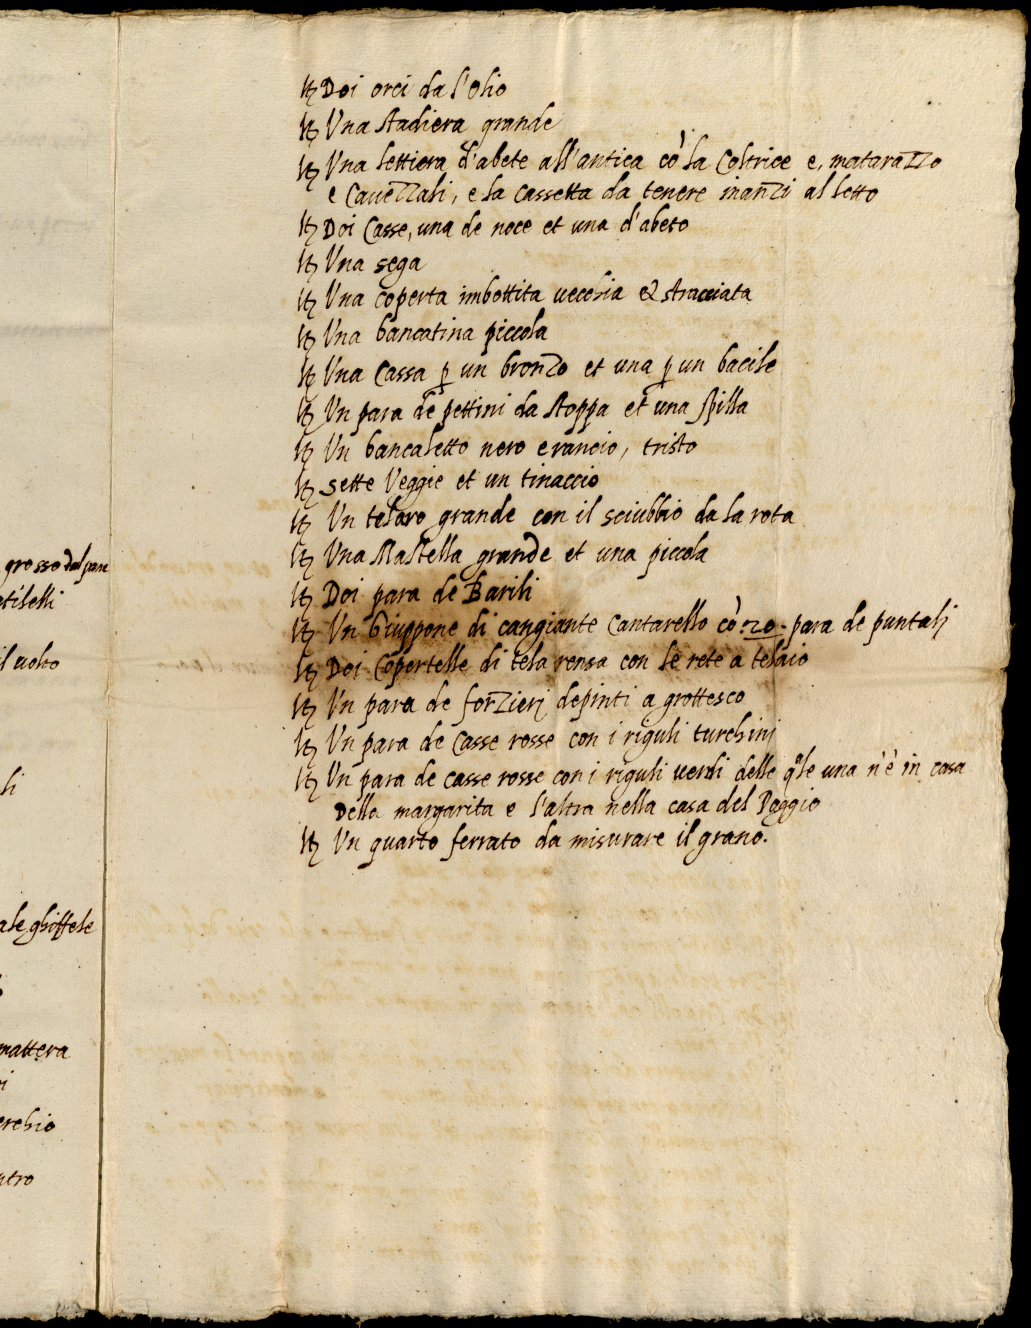 It Doi orci da l'olio
It Una stadiera grande
It Una lettiera d'abete all'antica cò la Coltrice e, matarazzo
e Cauezzali, e la cassetta da tenere inanzi al letto
It Doi Casse, una de noce et una d'abeto
It Una sega
It Una coperta imbottita uecchia & stracciata
It Una bancatina piccola
It Una Cassa p un bronzo et una p un bacile
It Un para de pettini da stoppa et una spilla
It Un bancaletto nero e rancio, tristo
It sette Veggie et un tinaccio
It Un telaro grande con il sciubbio da la rota
It Una Mastella grande et una piccola
It Doi para de Barili
It Un Giuppone di cangiante Cantarello cò .20. para de puntali
It Doi Copertelle di tela rensa con le rete a telaio
It Un para de forzieri depinti a grottesco
It Un para de Casse rosse con i riguli turchini
It Un para de casse rosse con i riguli uerdi delle qle una n'è in casa
Della margarita e l'altra nella casa del Poggio
It Un quarto ferrato da misurare il grano.
grosso dal pan
il uolto
li
mattera